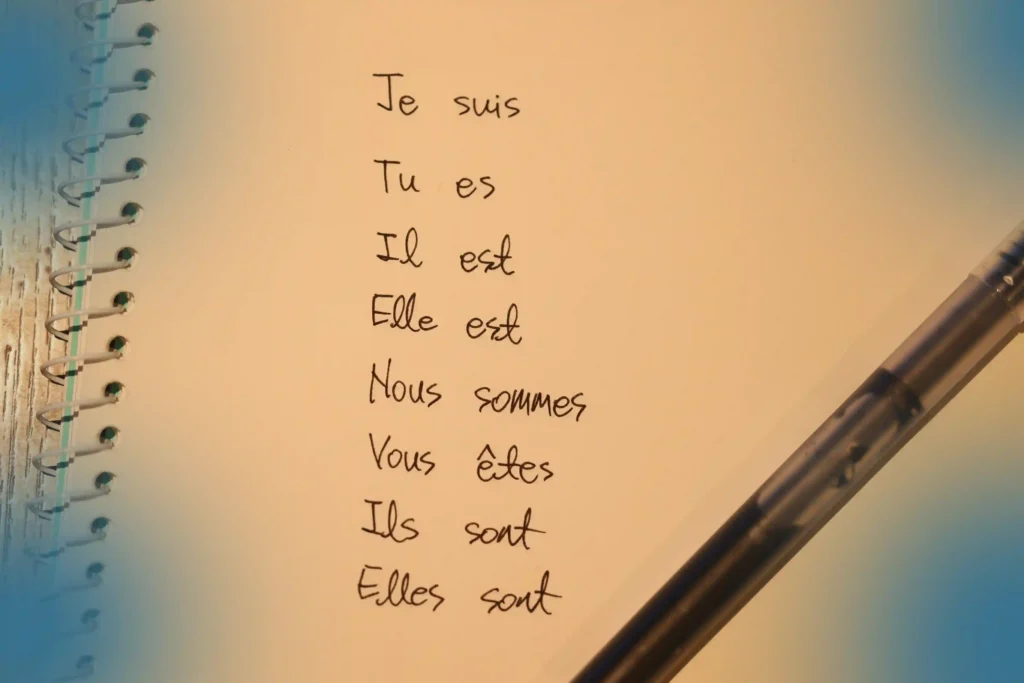 Je suis
Tu es
Il est
Elle est
Nous sommes
Vous êtes
Ils sont
Elles sont